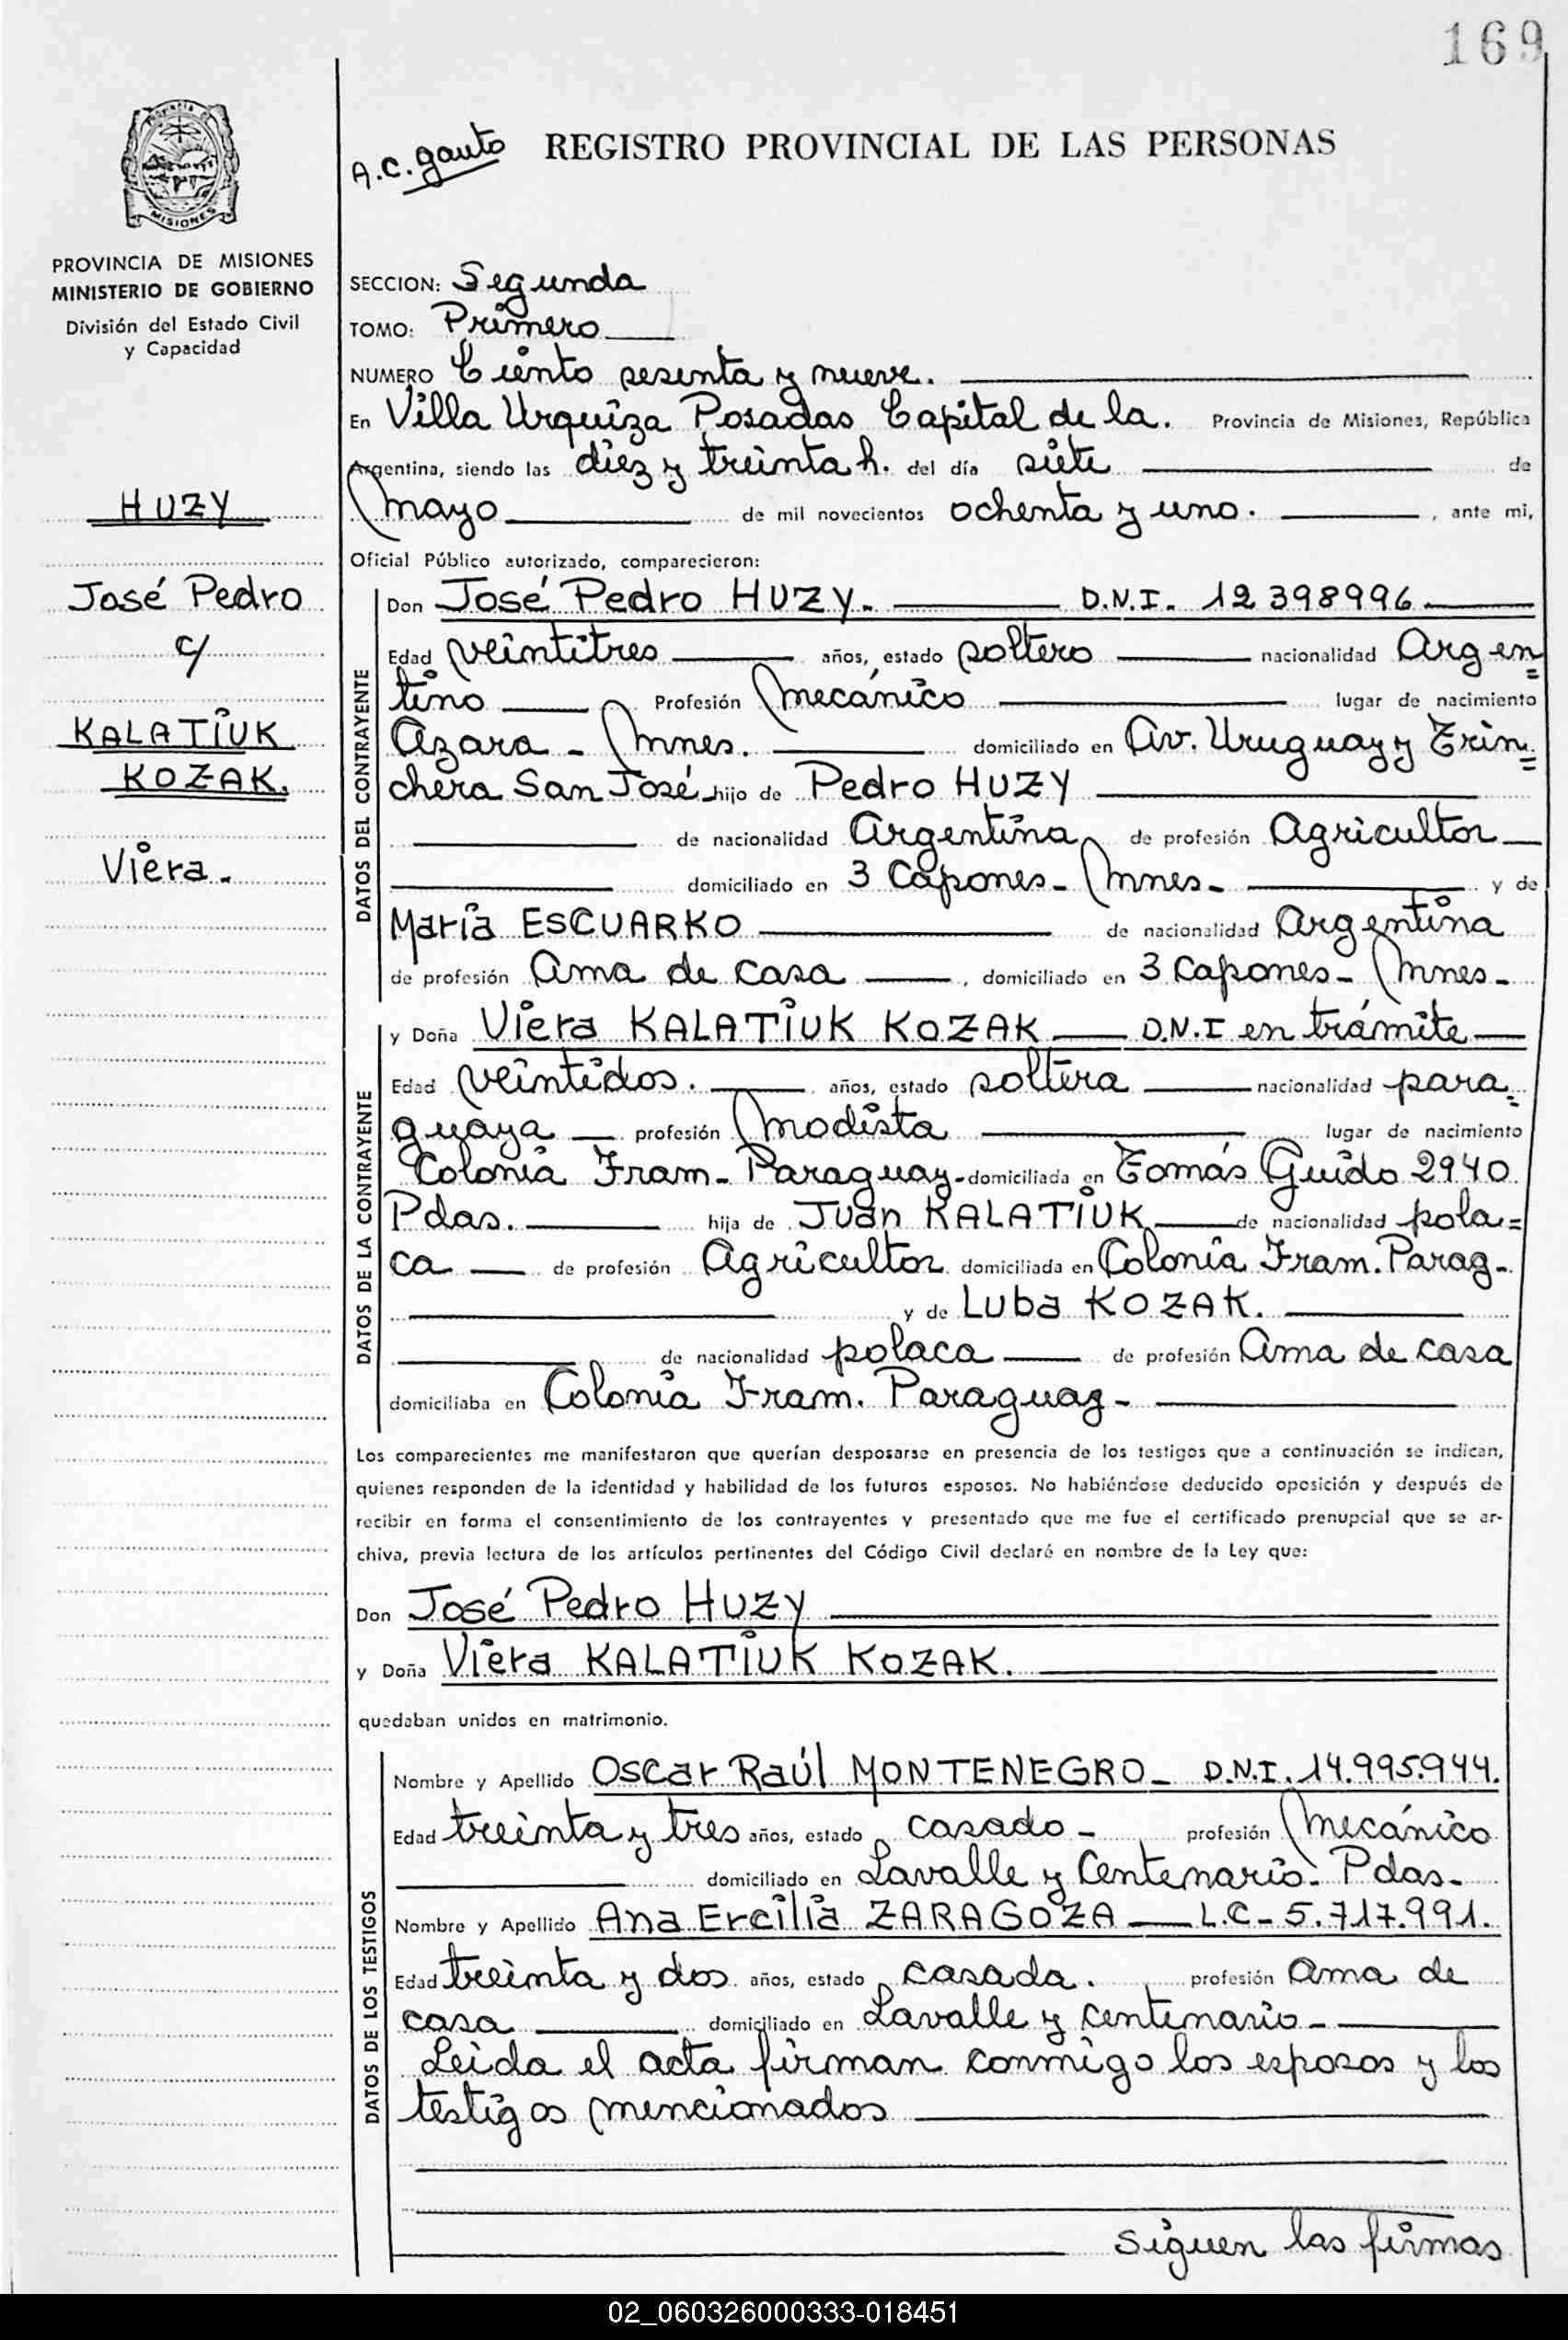 169
A.C. Gauto
REGISTRO PROVINCIAL DE LAS PERSONAS
Provincia de
MISIONES
PROVINCIA DE MISIONES
MINISTERIO DE GOBIERNO
División del Estado Civil
y Capacidad
HUZY
José Pedro
c/
KALATIUK
KOZAK.
Viera.
SECCION: Segunda
TOMO: Primero
NUMERO Ciento sesenta y nueve.
En Villa Urquiza Posadas Capital de la. Provincia de Misiones, República
Argentina, siendo las diez y treinta h. del día siete de
mayo de mil novecientos ochenta y uno. , ante mi,
Oficial Público autorizado, comparecieron:
DATOS DEL CONTRAYENTE
Don José Pedro HUZY. D.N.I. 12 398996
Edad veintitres años, estado soltero nacionalidad Argen=
tino Profesión mecánico lugar de nacimiento
Azara - Mnes. domiciliado en Av. Uruguay y Trin=
chera San José hijo de Pedro HUZY
de nacionalidad Argentina de profesión Agricultor
domiciliado en 3 Capones - Mnes - y de
María ESCUARKO de nacionalidad Argentina
de profesión Ama de casa , domiciliado en 3 Capones - Mnes -
DATOS DE LA CONTRAYENTE
y Doña Viera KALATIUK KOZAK D.N.I en trámite
Edad veintidos. años, estado soltera nacionalidad para=
guaya profesión modista lugar de nacimiento
Colonia Fram - Paraguay - domiciliada en Tomás Guido 2940
Pdas. hija de Juan KALATIUK de nacionalidad pola=
ca de profesión Agricultor domiciliada en Colonia Fram. Parag-
y de Luba KOZAK.
de nacionalidad polaca de profesión Ama de casa
domiciliaba en Colonia Fram. Paraguay -
Los comparecientes me manifestaron que querían desposarse en presencia de los testigos que a continuación se indican,
quienes responden de la identidad y habilidad de los futuros esposos. No habiéndose deducido oposición y después de
recibir en forma el consentimiento de los contrayentes y presentado que me fue el certificado prenupcial que se ar-
chiva, previa lectura de los artículos pertinentes del Código Civil declaré en nombre de la Ley que:
Don José Pedro HUZY
y Doña Viera KALATIUK KOZAK.
quedaban unidos en matrimonio.
DATOS DE LOS TESTIGOS
Nombre y Apellido Oscar Raúl MONTENEGRO - D.N.I. 14.995.944.
Edad treinta y tres años, estado casado - profesión Mecánico
domiciliado en Lavalle y Centenario. Pdas -
Nombre y Apellido Ana Ercilia ZARAGOZA L.C - 5.717.991.
Edad treinta y dos años, estado casada. profesión Ama de
casa domiciliado en Lavalle y Centenario -
Leida el acta firman conmigo los esposos y los
testigos mencionados
Siguen las firmas
02_060326000333-018451